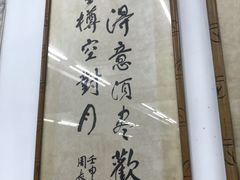 得意須盡歡
金樽空對月
壬申
周